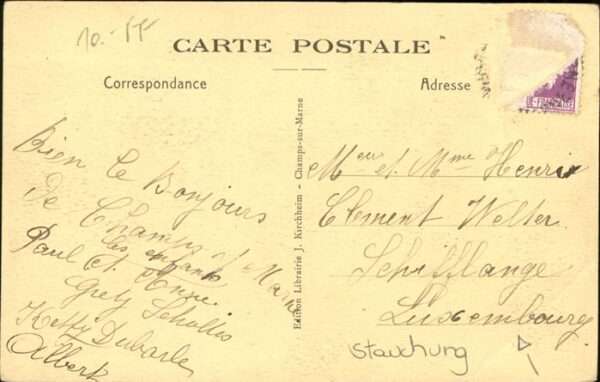 10.- FF
CARTE POSTALE
Correspondance
Adresse
Bien le Bonjours
De Champs s/ Marne
les enfants
Paul et
Grety Scholtis
Ketty Dubarle
Albert
Edition Librairie J. Kirchheim — Champs-sur-Marne
Meu et Mme Henri
Clement Welter
Schifflange
Luxembourg
stauchung